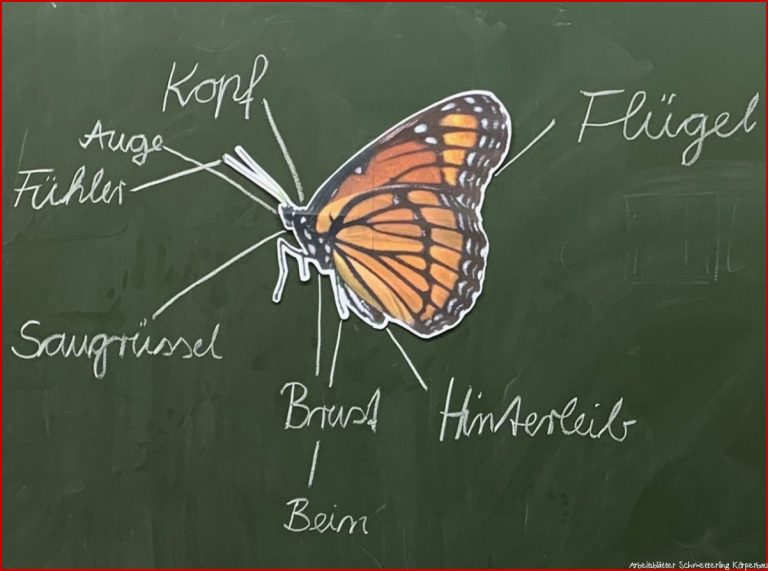 Kopf
Flügel
Auge
Fühler
Saugrüssel
Brust
Hinterleib
Bein
Arbeitsblätter Schmetterling Körperbau